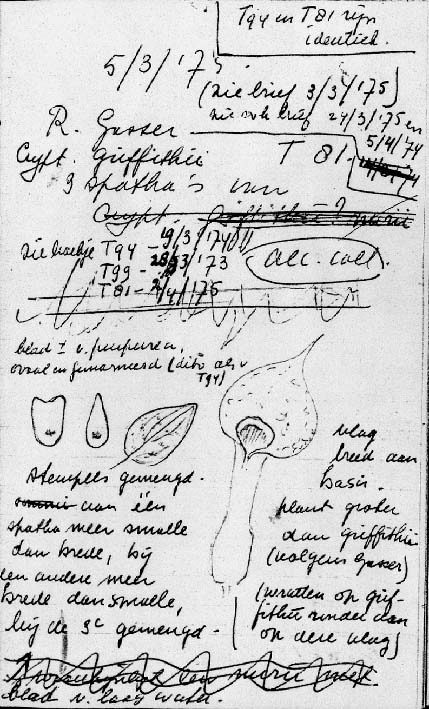 T94 en T81 zijn
identiek.
5/3/'75.
(zie brief 3/3/'75)
zie ook brief 24/3/'75 en
5/4/'74
R. Gasser
Crypt. Griffithii
T 81
3 spatha's van
Crypt. Griffithii?
zie boekje T94 - 19/3/'74
T99 - /3/'73
T81 - 2/4/'75
alc. coll.
blad ± v. purperen,
ovaal en gemarmerd (dito als
T94)
stempels gemengd.
aan één
spatha meer smalle
dan brede, bij
een andere meer
brede dan smalle,
bij de 3e gemengd.
vlag
breed aan
basis.
plant groter
dan griffithii
(volgens Gasser)
(wratten op grif-
fithii ronder dan
op deze vlag)
blad v. laag water.